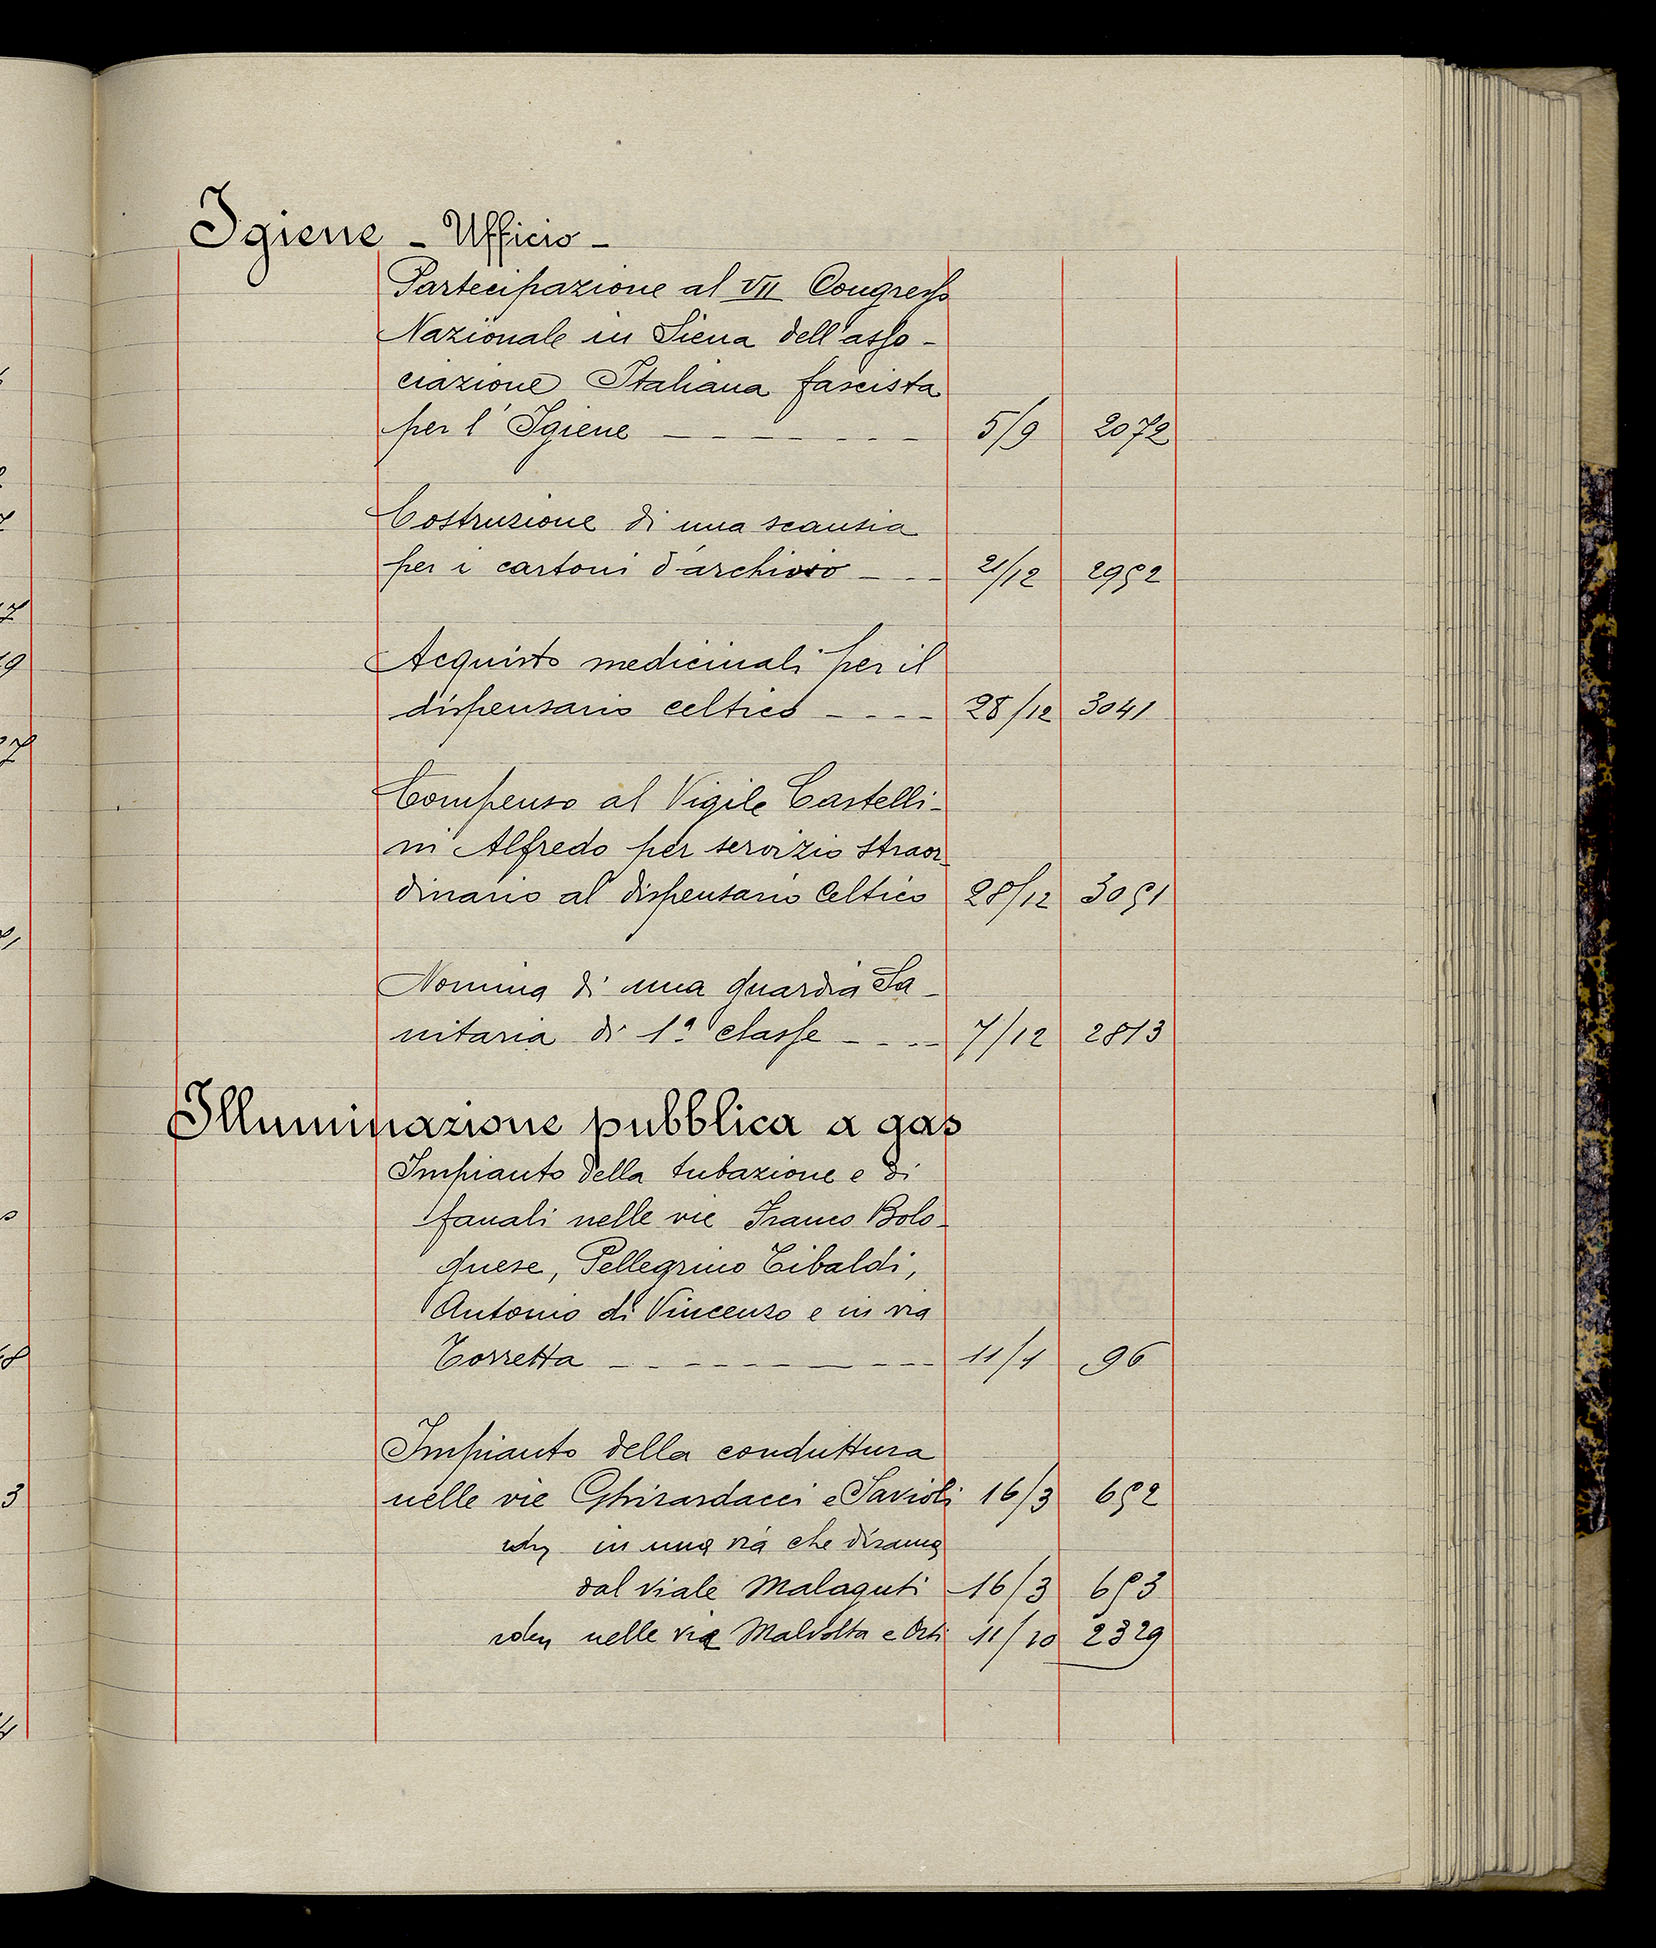 Igiene - Ufficio -
Partecipazione al VII Congresso
Nazionale in Siena dell'asso-
ciazione Italiana fascista
per l'Igiene - - - - - - - 5/9 2072
Costruzione di una scansia
per i cartoni d'archivio - - - 21/12 2952
Acquisto medicinali per il
dispensario celtico - - - - 28/12 3041
Compenso al Vigile Castelli-
ni Alfredo per servizio straor-
dinario al dispensario Celtico 28/12 3051
Nomina di una guardia Sa-
nitaria di 1ª classe - - - - 7/12 2813
Illuminazione pubblica a gas
Impianto della tubazione e di
fanali nelle vie Franco Bolo-
gnese, Pellegrino Tibaldi,
Antonio di Vincenzo e in via
Torretta - - - - - - - - - 11/1 96
Impianto della conduttura
nelle vie Ghirardacci e Savioli 16/3 652
idem in una via che dirama
dal viale Malaguti 16/3 653
idem nelle vie Malvolta e Orti 11/10 2329